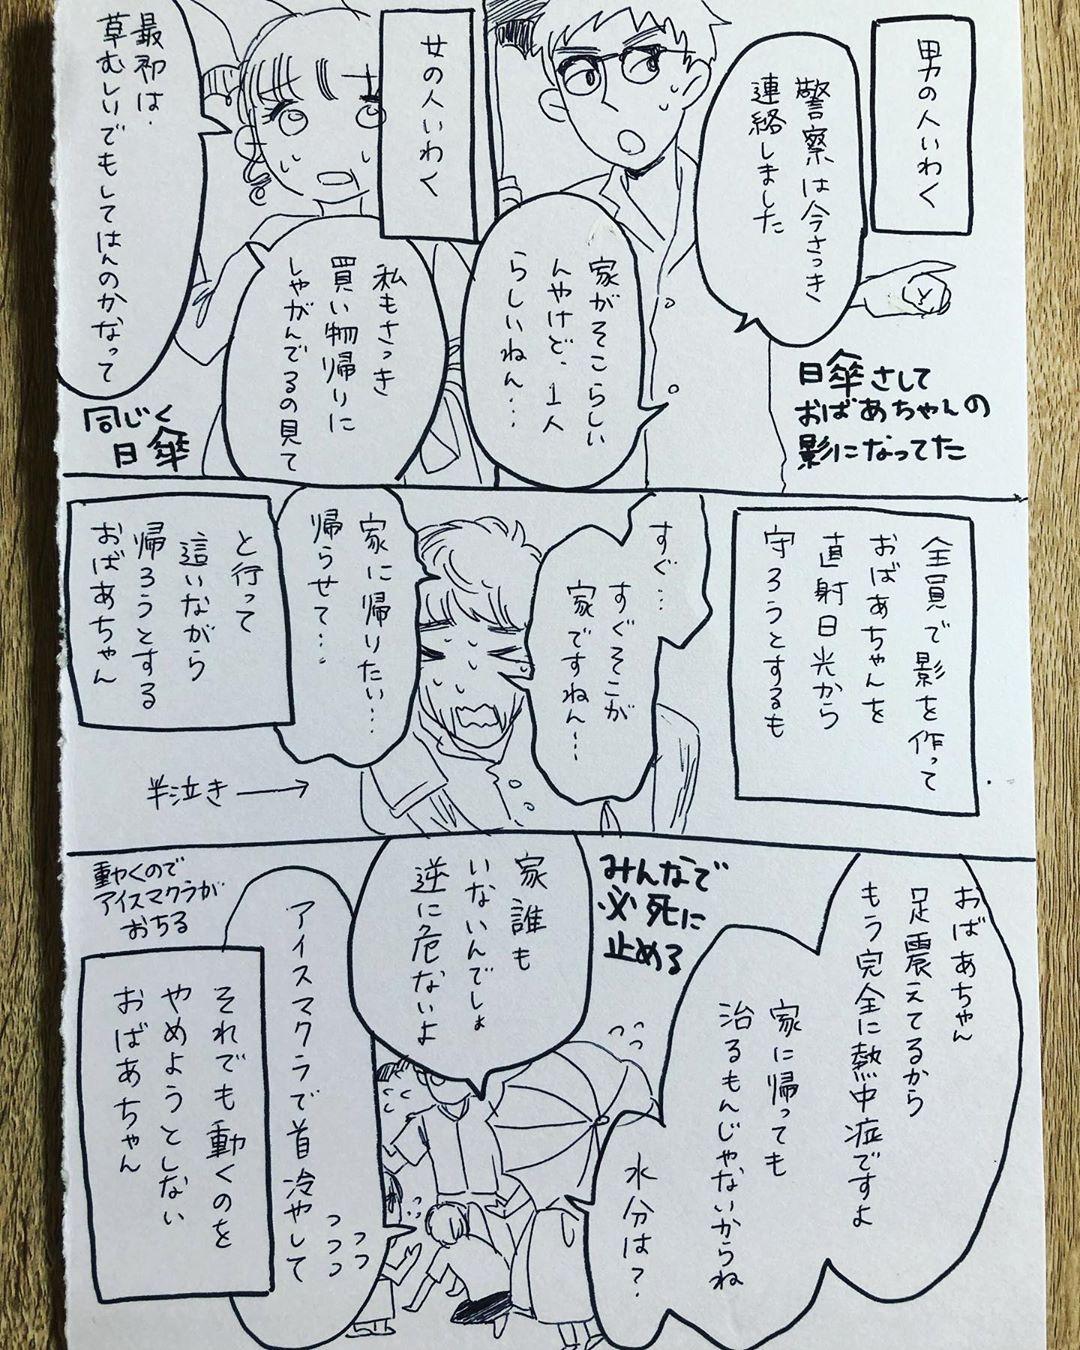 男の人いわく
警察は今さっき
連絡しました
家がそこらしい
んやけど、1人
らしいねん…
日傘さして
おばあちゃんの
影になってた
女の人いわく
私もさっき
買い物帰りに
しゃがんでるの見て
最初は、
草むしりでもしてはんのかなって
同じく
日傘
全員で影を作って
おばあちゃんを
直射日光から
守ろうとするも
すぐ…
すぐそこが
家ですねん…
家に帰りたい…
帰らせて…
と行って
這いながら
帰ろうとする
おばあちゃん
半泣き
おばあちゃん
足震えてるから
もう完全に熱中症ですよ
家に帰っても
治るもんじゃないからね
水分は?
みんなで
必死に
止める
家誰も
いないんでしょ
逆に危ないよ
アイスマクラで首冷やして
動くので
アイスマクラが
おちる
それでも動くのを
やめようとしない
おばあちゃん